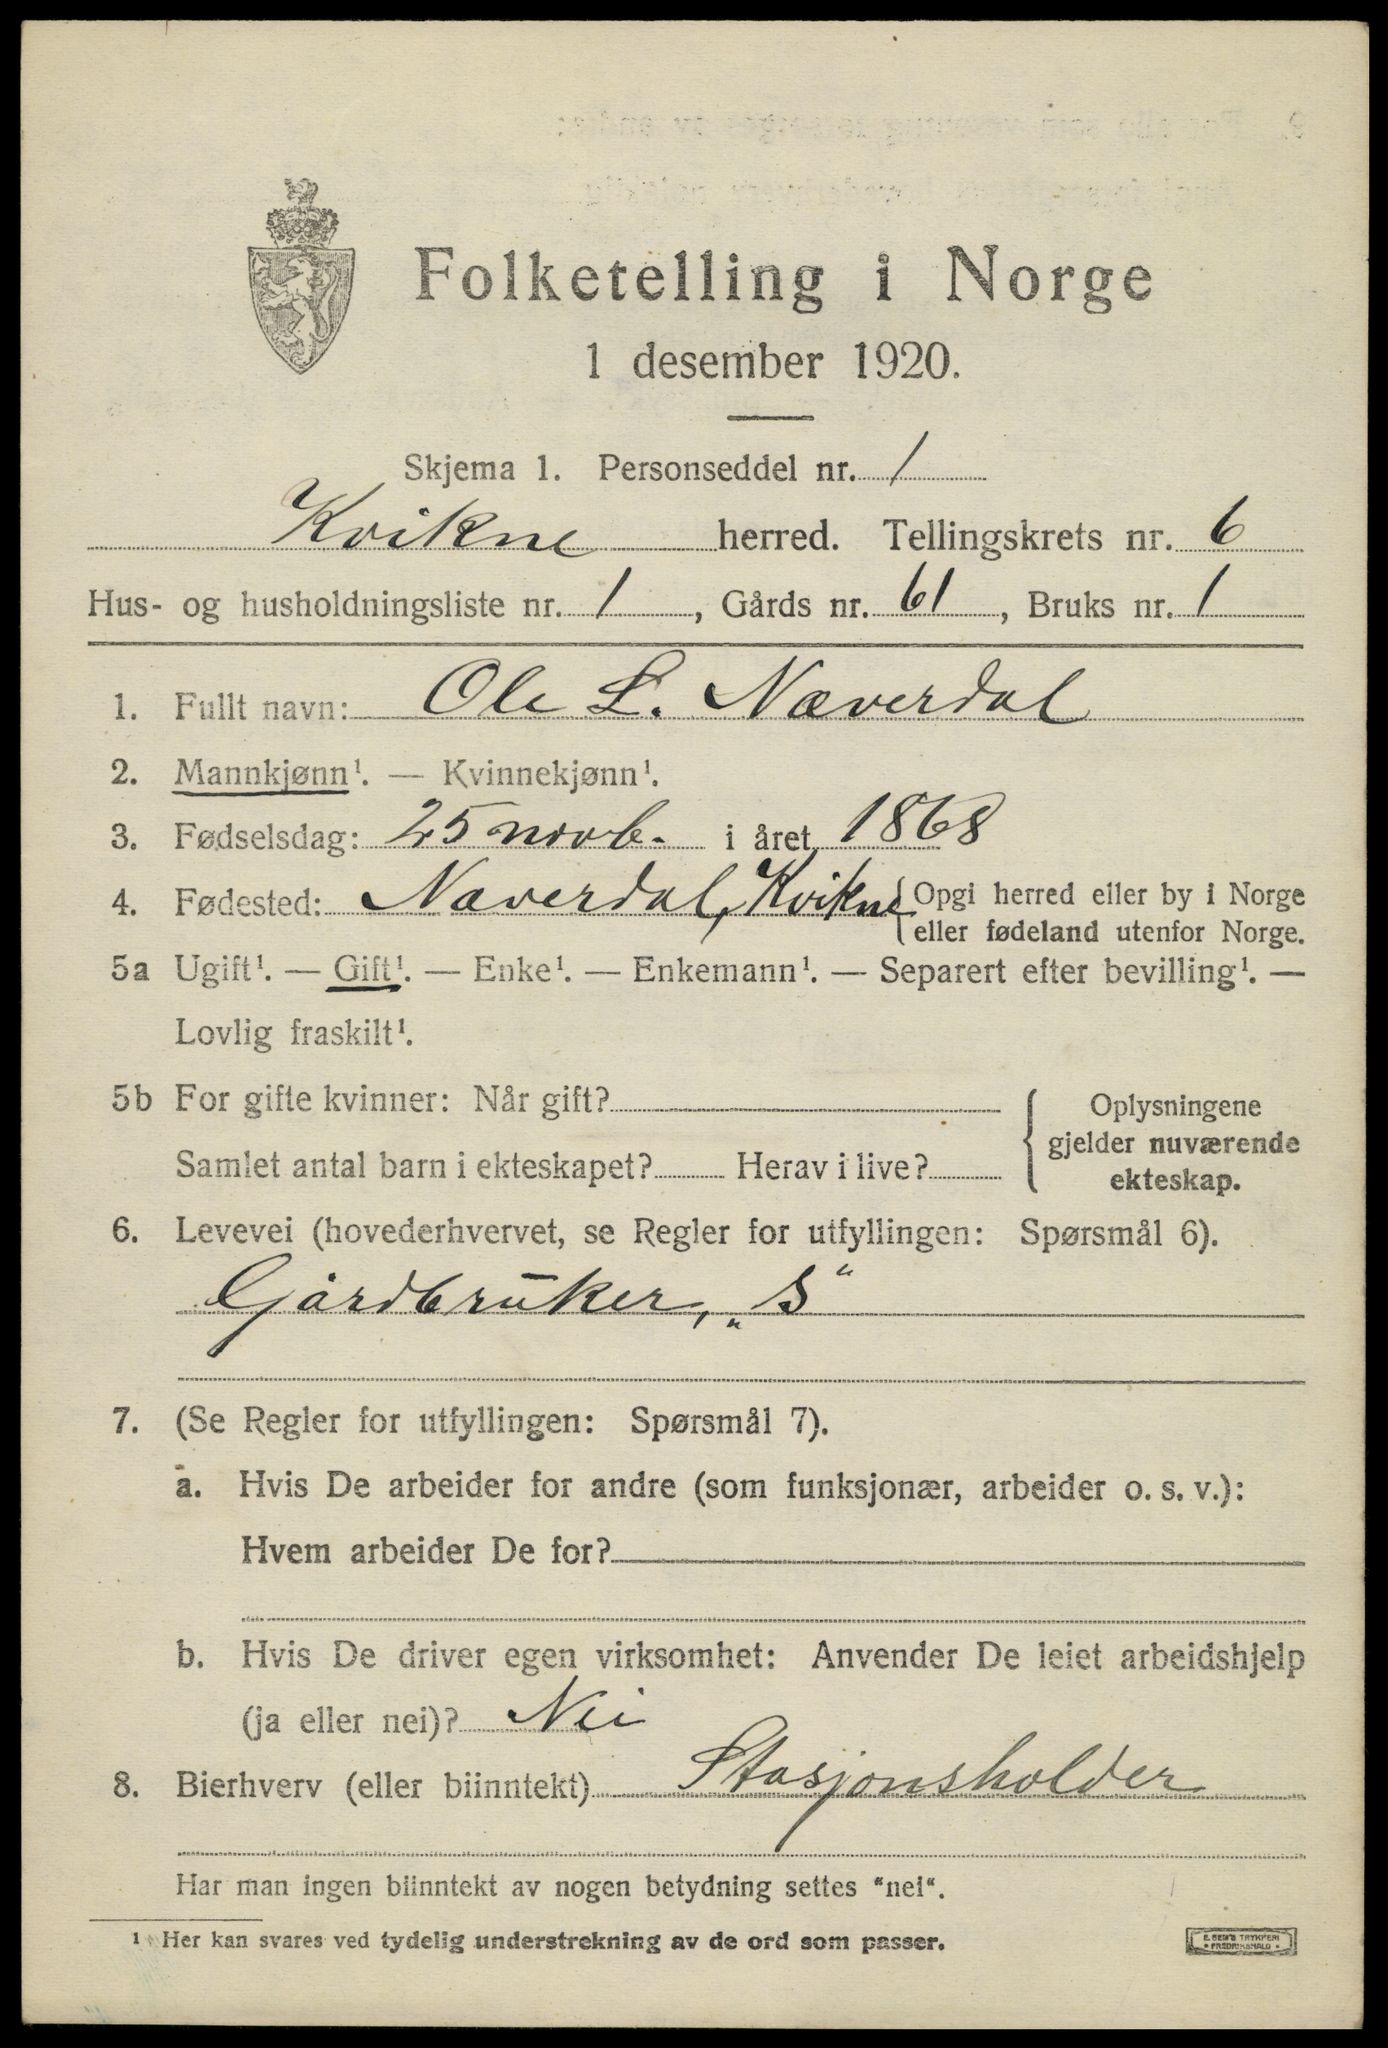 Folketelling i Norge
1 desember 1920.
Skjema 1. Personseddel nr. 1
Kvikne herred. Tellingskrets nr. 6
Hus- og husholdningsliste nr. 1, Gårds nr. 61, Bruks nr. 1
1. Fullt navn: Ole L. Næverdal
2. Mannkjønn¹. — Kvinnekjønn¹.
3. Fødselsdag: 25 novb. i året 1868
4. Fødested: Næverdal, Kvikne { Opgi herred eller by i Norge
eller fødeland utenfor Norge.
5a Ugift¹. — Gift¹. — Enke¹. — Enkemann¹. — Separert efter bevilling¹. —
Lovlig fraskilt¹.
5b For gifte kvinner: Når gift?
Samlet antal barn i ekteskapet? Herav i live?
{ Oplysningene
gjelder nuværende
ekteskap.
6. Levevei (hovederhvervet, se Regler for utfyllingen: Spørsmål 6).
Gårdbruker, „S“
7. (Se Regler for utfyllingen: Spørsmål 7).
a. Hvis De arbeider for andre (som funksjonær, arbeider o. s. v.):
Hvem arbeider De for?
b. Hvis De driver egen virksomhet: Anvender De leiet arbeidshjelp
(ja eller nei)? Nei
8. Bierhverv (eller biinntekt) Stasjonsholder
Har man ingen biinntekt av nogen betydning settes "nei".
¹ Her kan svares ved tydelig understrekning av de ord som passer.
E. SEM'S TRYKKERI
FREDRIKSHALD